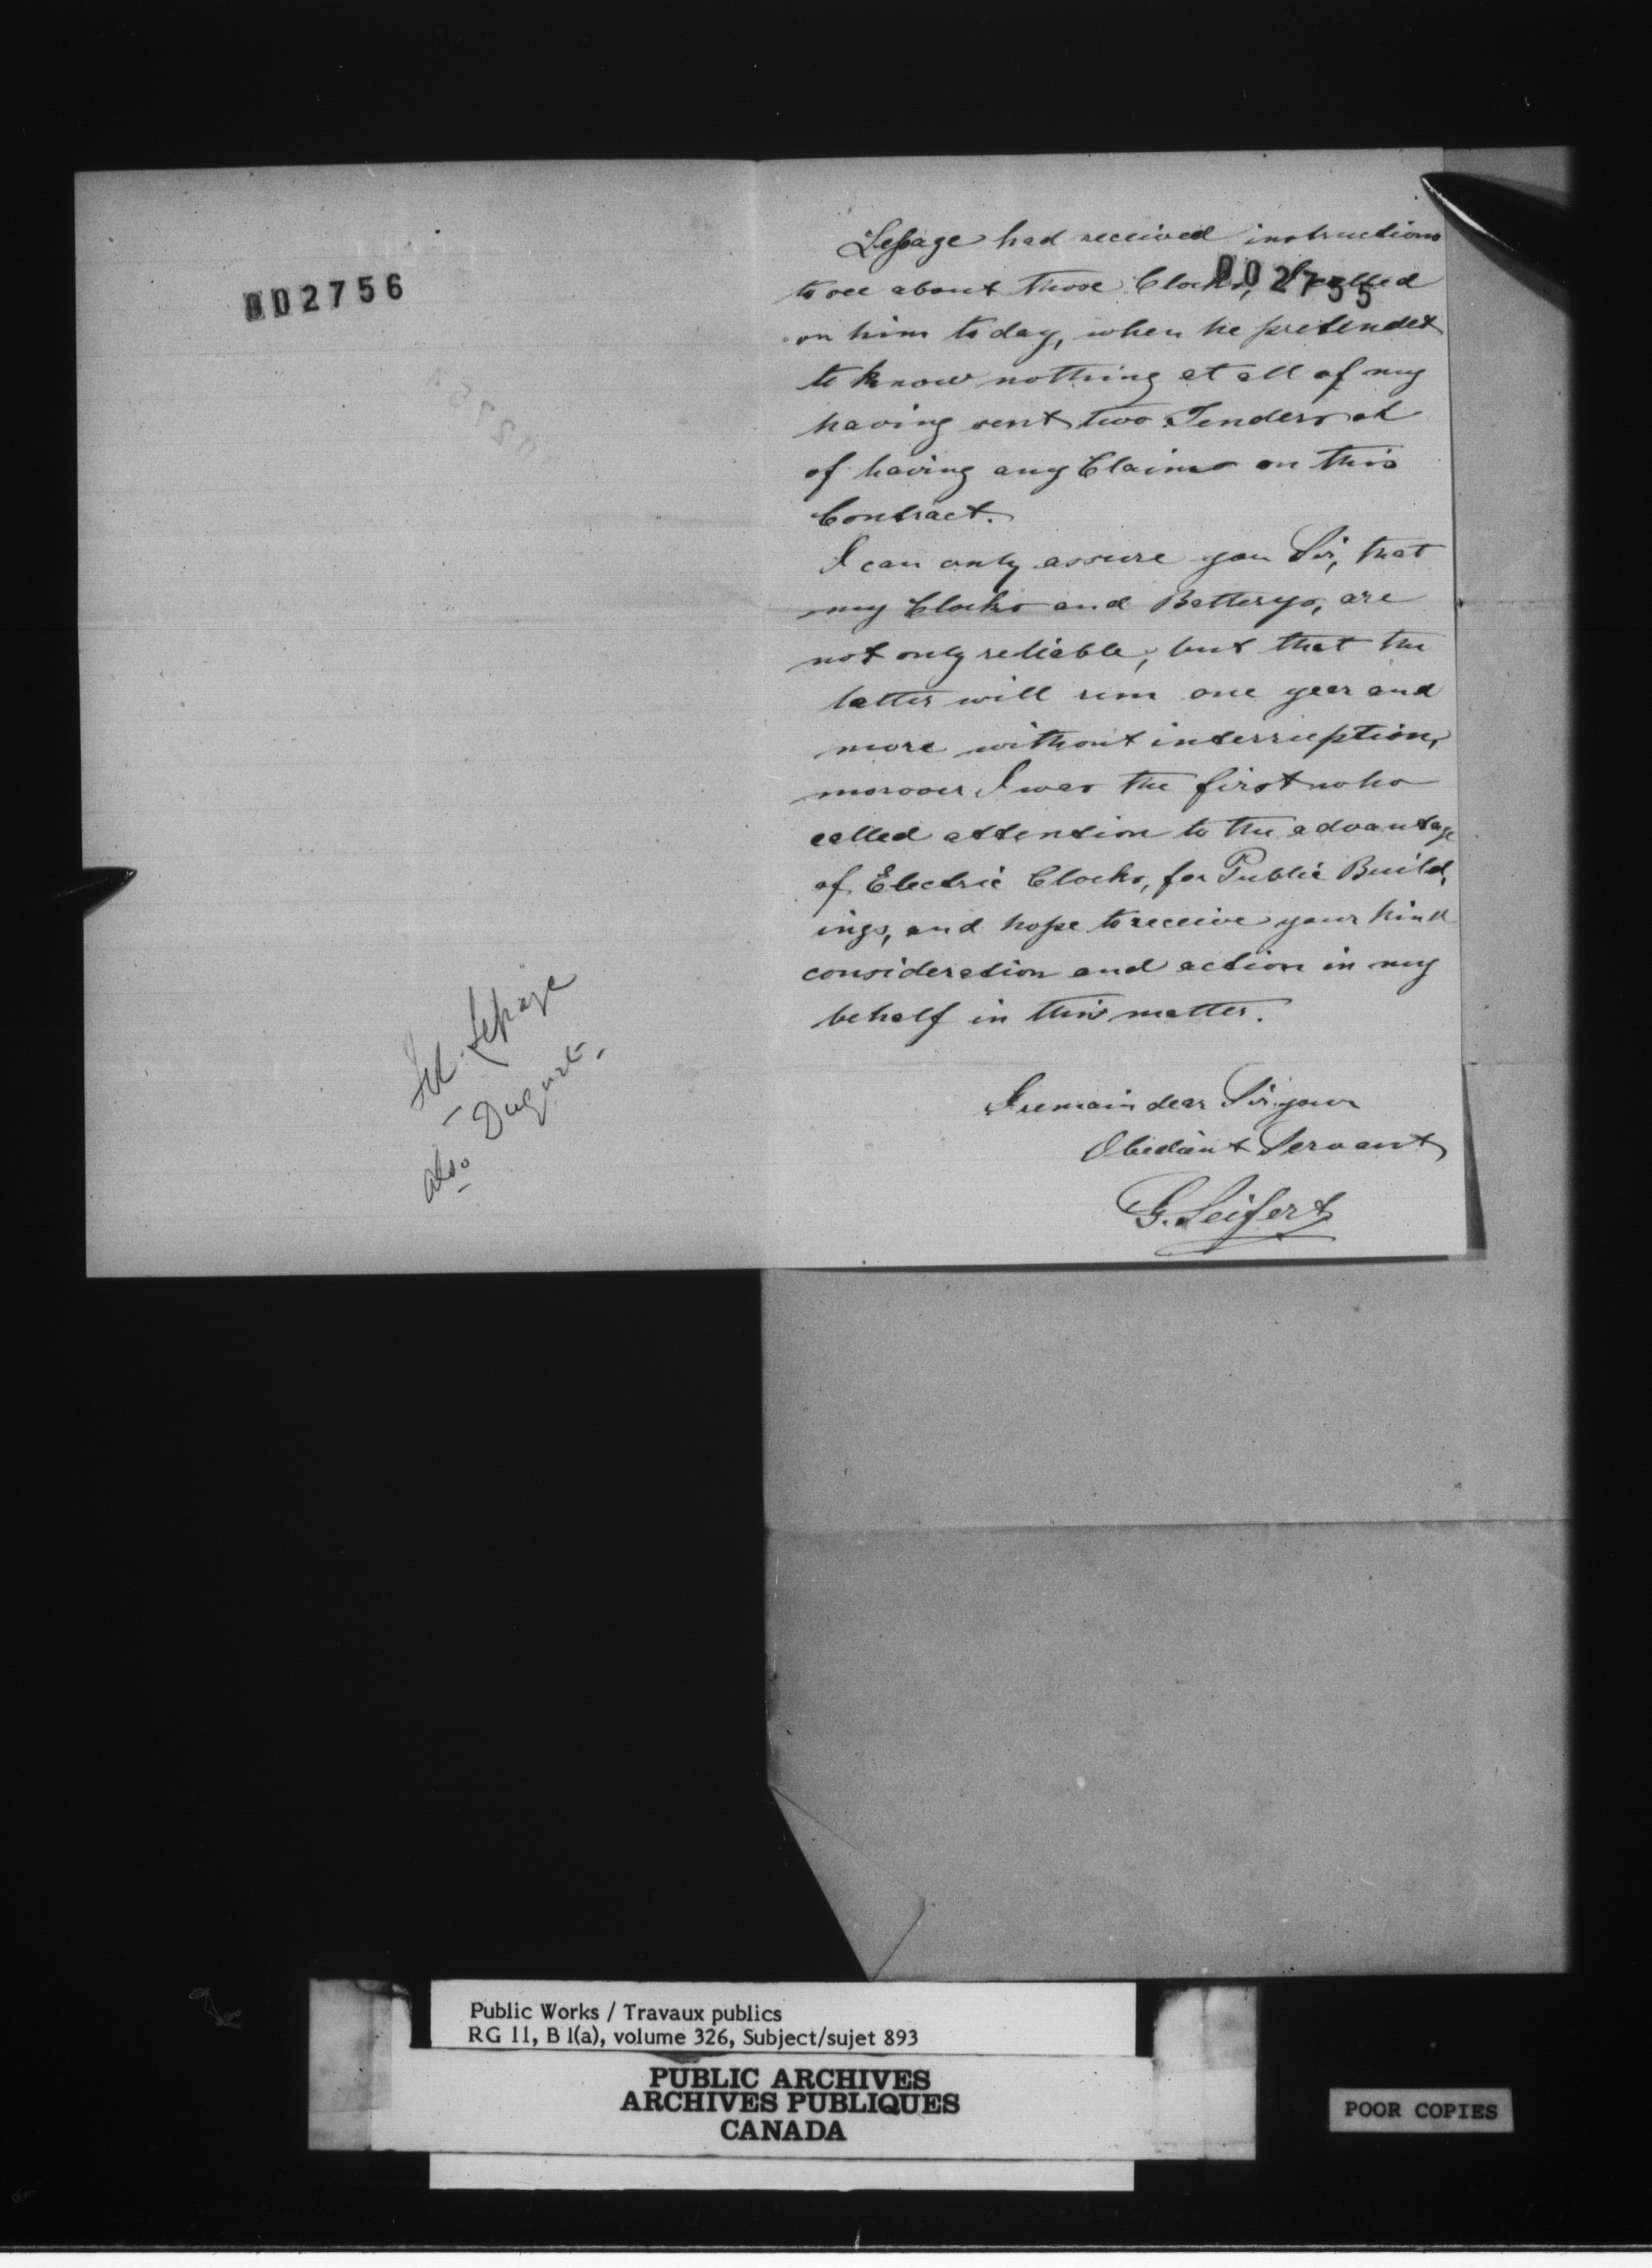 002756
Lepage had received instructions
to see about those Clocks, I called
002755
on him to day, when he pretendet
to know nothing at all of my
having sent two Tenders
of having any Claims on this
Contract.
I can only assure you Sir, that
my Clocks and Batterys, are
not only reliable, but that the
latter will run one year and
more without interruption,
morover I was the first who
called attention to the advantage
of Electric Clocks, for Public Build,
ings, and hope to receive your kind
consideration and action in my
behalf in this matter.
I remain dear Sir your
Obediant Servant
G. Seifert
Lepage
also
Public Works / Travaux publics
RG 11, B 1(a), volume 326, Subject/sujet 893
PUBLIC ARCHIVES
ARCHIVES PUBLIQUES
CANADA
POOR COPIES